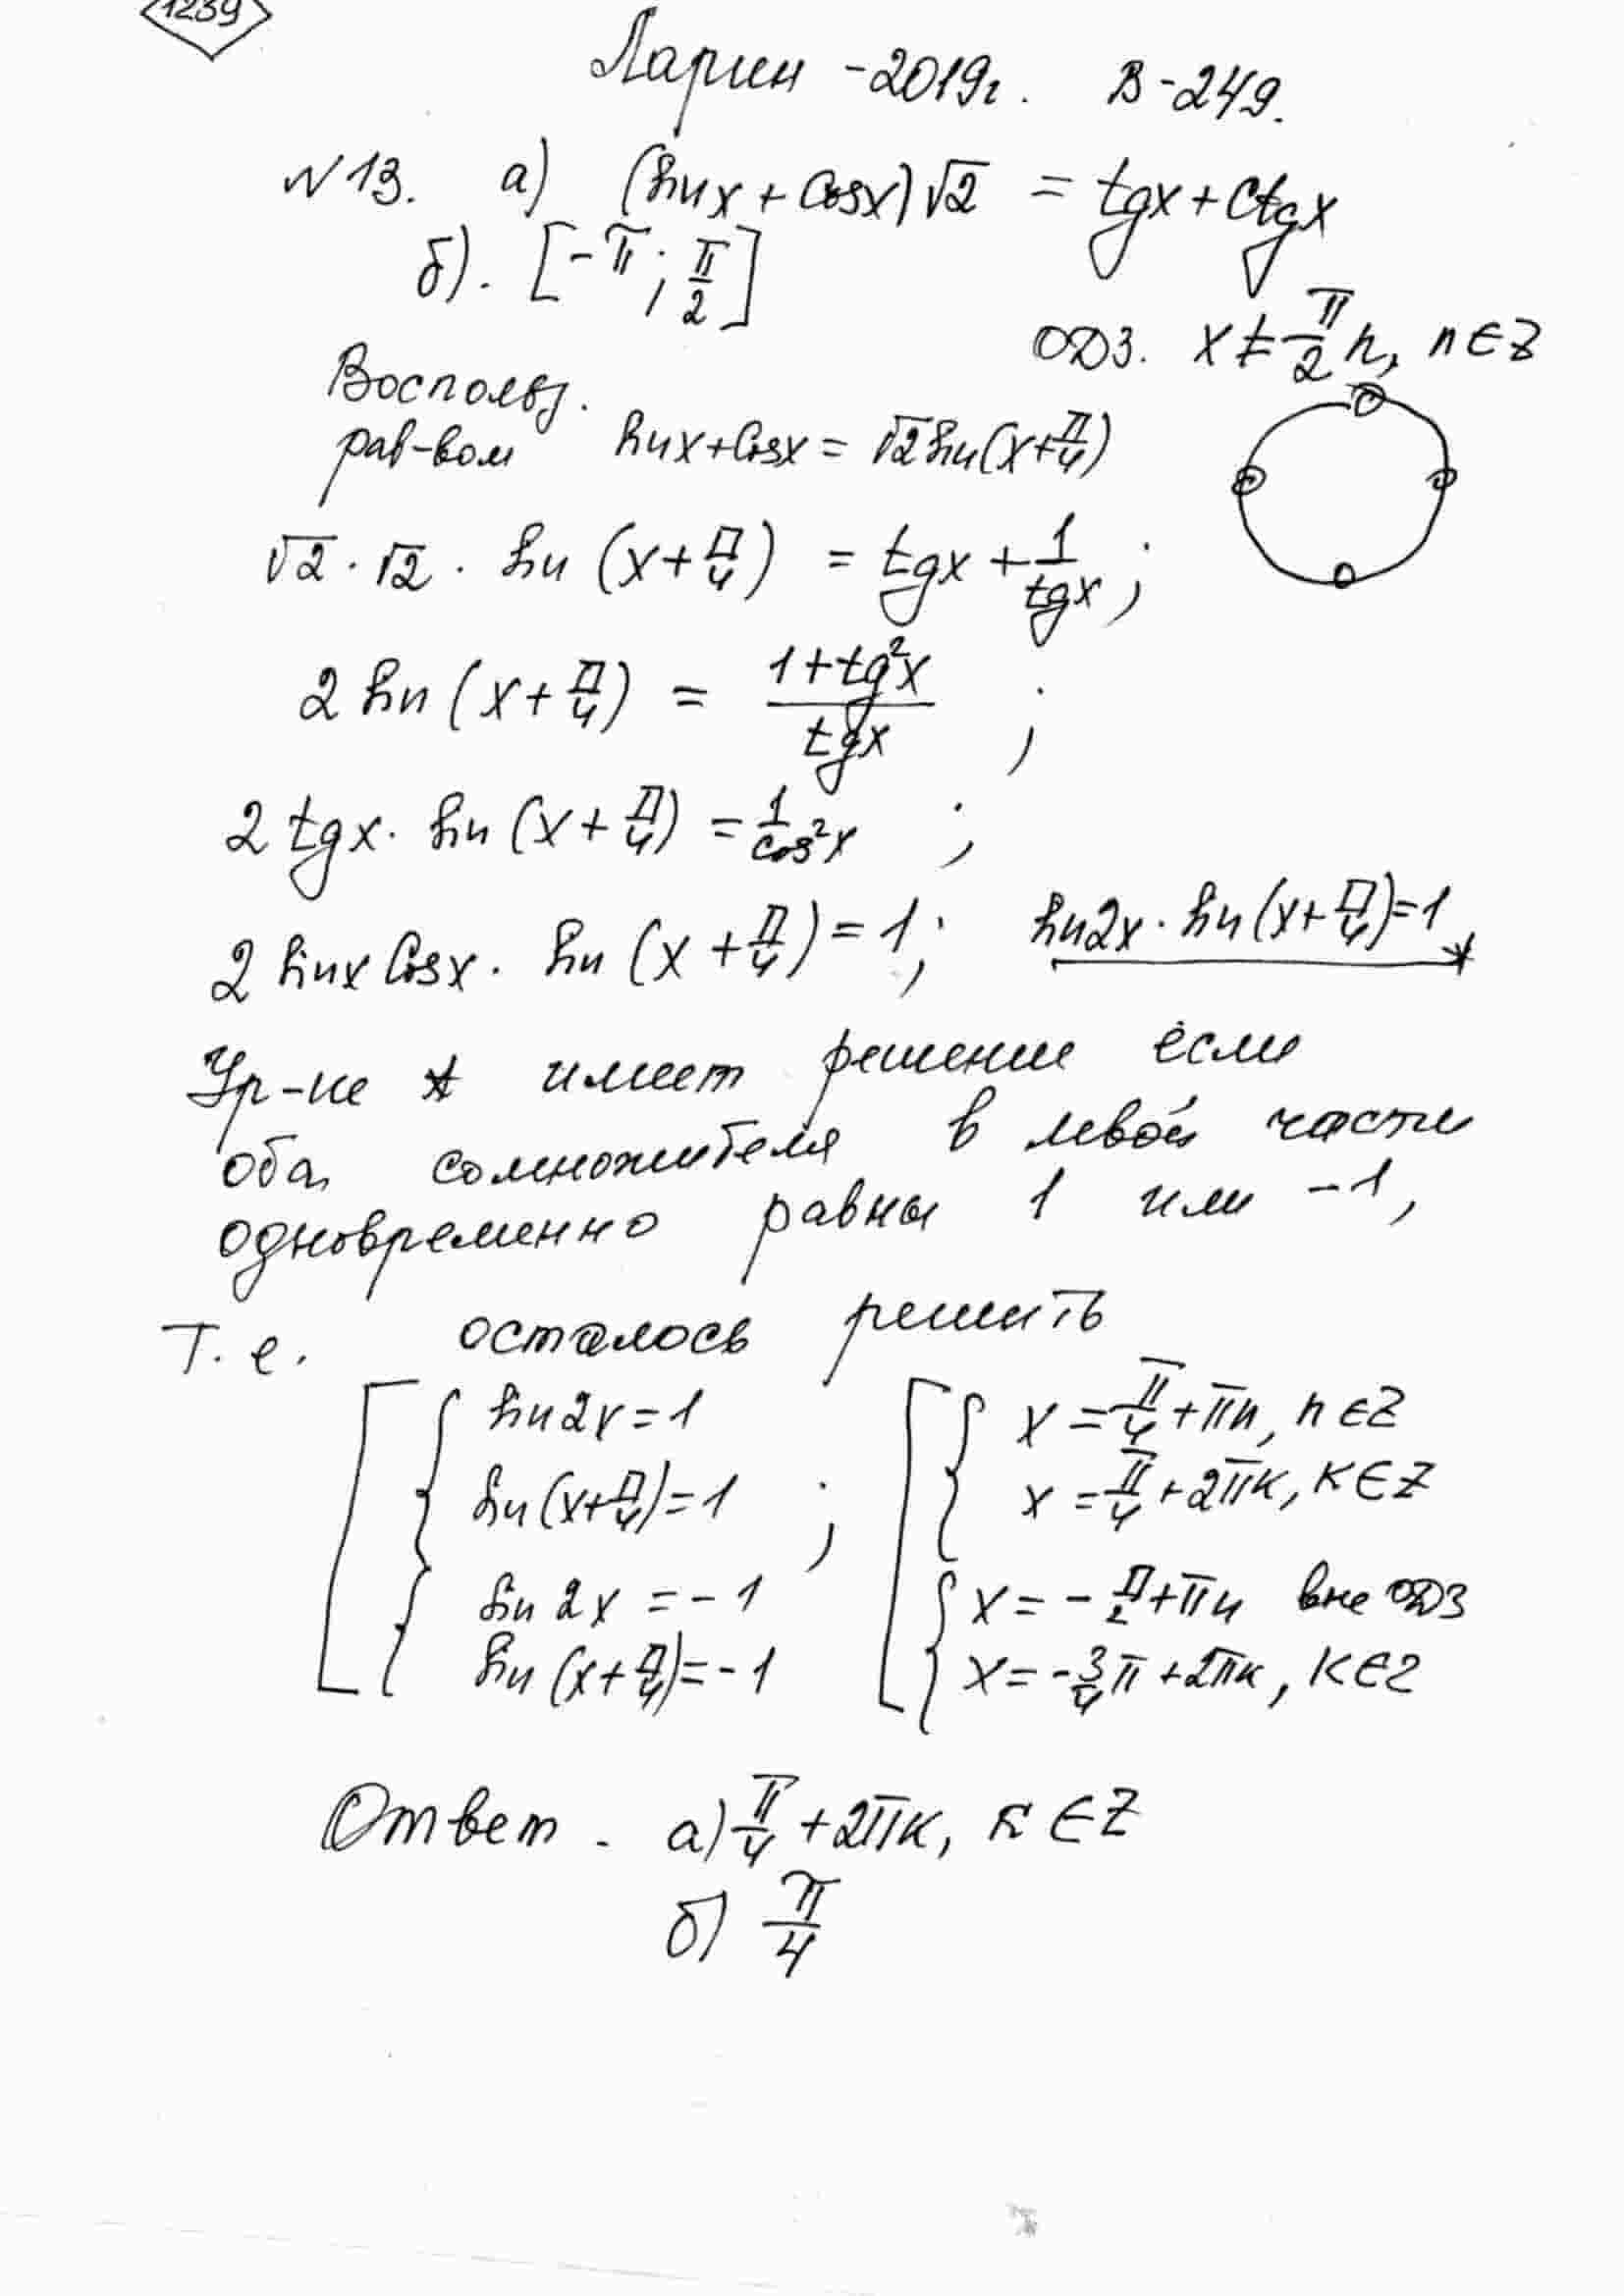 1239
Ларин - 2019г. В - 249.
N 13. а) (sinx + cosx)√2 = tgx + ctgx
б). [-π; π/2]
ОДЗ. x ≠ π/2 n, n ∈ Z
Воспольз.
рав-вом sinx + cosx = √2 sin(x + π/4)
√2 · √2 · sin (x + π/4) = tgx + 1/tgx ;
2 sin (x + π/4) = (1 + tg²x)/tgx ;
2 tgx · sin (x + π/4) = 1/cos²x ;
2 sinx cosx · sin (x + π/4) = 1 ; sin2x · sin (x + π/4) = 1 *
Ур-ие * имеет решение если
оба сомножителя в левой части
одновременно равны 1 или -1,
Т. е. осталось решить
[ { sin2x = 1 [ { x = π/4 + πn, n ∈ Z
sin (x + π/4) = 1 ; x = π/4 + 2πk, k ∈ Z
{ sin 2x = -1 { x = - π/2 + πn вне ОДЗ
sin (x + π/4) = -1 x = - 3/4 π + 2πk, k ∈ Z
Ответ. а) π/4 + 2πk, k ∈ Z
б) π/4